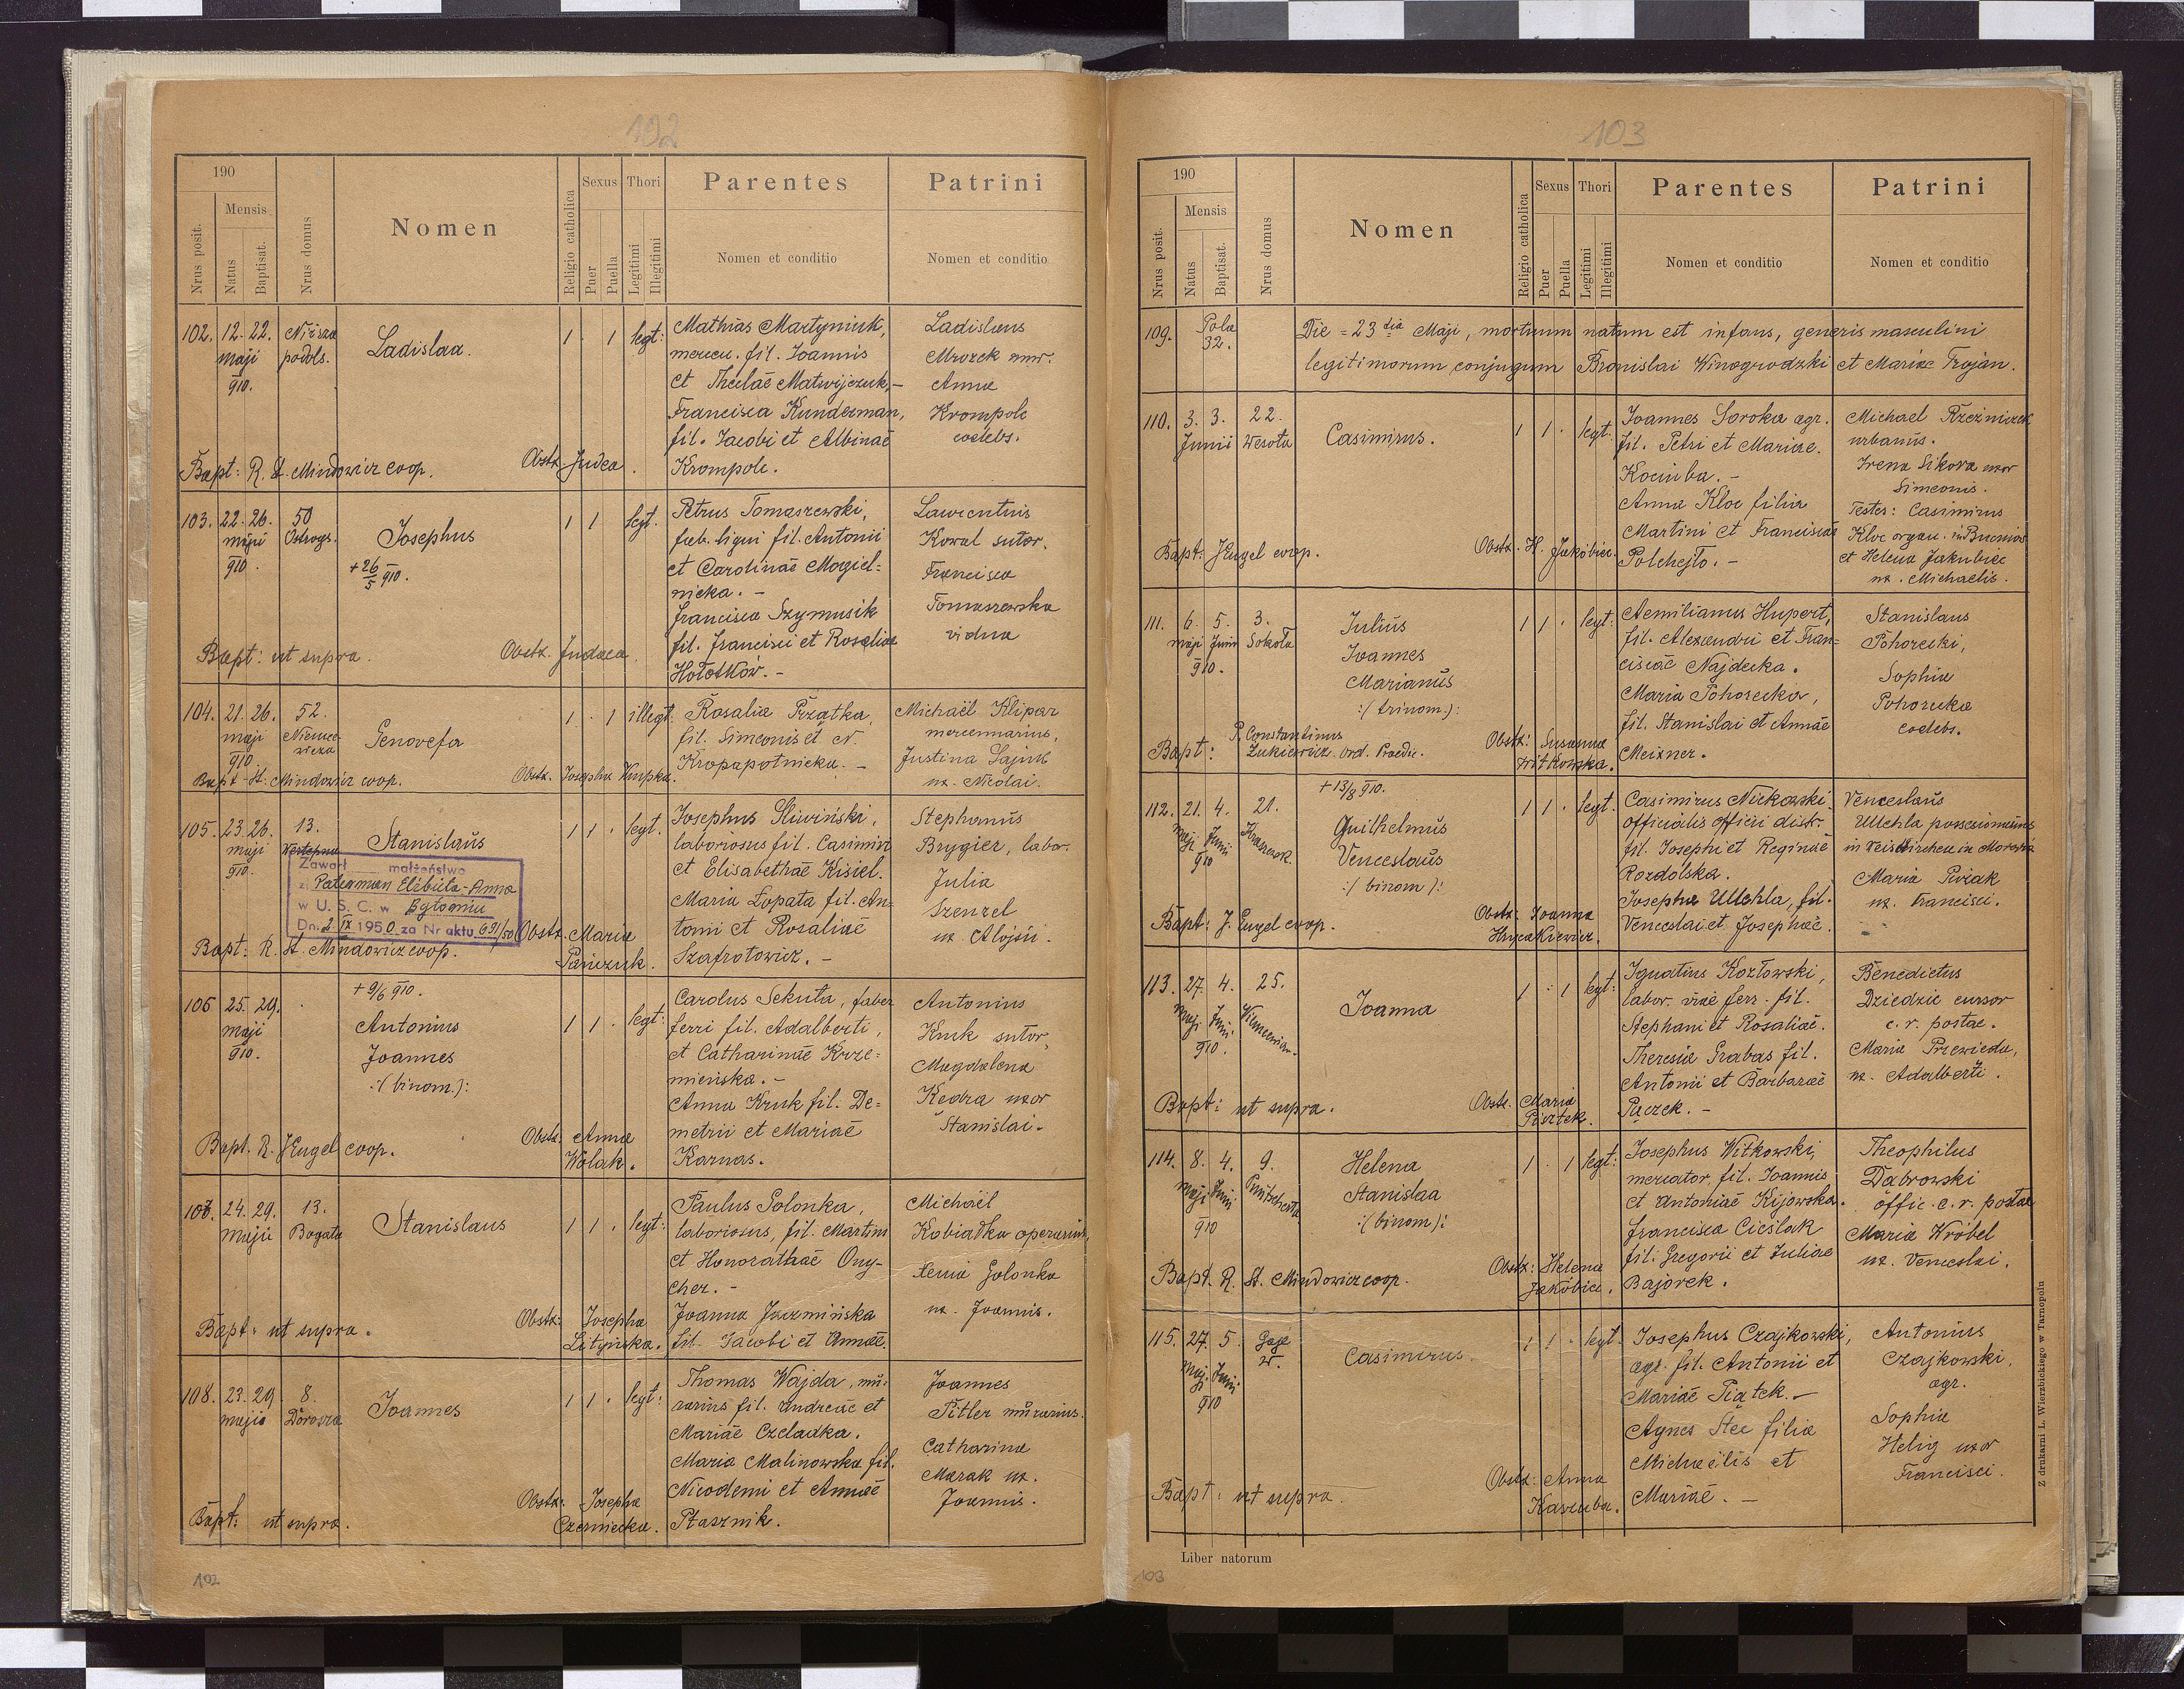 102
190
Nrus posit.
Mensis
Natus
Baptisat.
Nrus domus
Nomen
Religio catholica
Sexus
Puer
Puella
Thori
Legitimi
Illegitimi
Parentes
Nomen et conditio
Patrini
Nomen et conditio
102. 12. 22. maji 910.
Niższa podols.
Ladislaa.
1 . 1 legt:
Mathias Martyniuk,
mercen. fil. Joannis
et Theclae Matwijczuk,-
Francisca Kunderman,
fil. Jacobi et Albinae
Krompolc.
Ladislaus
Mrozek
Anna
Krompolc
coelebs.
Bapt: R. St. Mindowicz coop.
Obstx. Judea.
103. 22. 26. maji 910.
50 Ostrogs.
Josephus
+ 26/5 910.
1 1 legt.
Petrus Tomaszewski,
fab. ligni fil. Antonii
et Carolinae Magiel=
nicka. -
Francisca Szymusik
fil. Francisci et Rosaliae
Hołotków. -
Laurentius
Kowal sutor.
Francisca
Tomaszewska
vidua
Bapt: ut supra.
Obstx. Judaea.
104. 21. 26. maji 910
52. Niemcewicza
Genovefa
1 . 1 illegt.
Rosalia Prżątka,
fil. Simeonis et N.
Kropapotnicka. -
Michaël Klipar
mercennarius,
Justina Łajub
ux. Nicolai.
Bapt St. Mindowicz coop.
Obstx. Josepha Krupka.
105. 23. 26. maji 910.
13. Wertepna
Stanislaus
Zawarł małżeństwo
z Paterman Elżbieta-Anna
w U. S. C. w Bytomiu
Dn. 2 IX 1950 za Nr aktu 691/50
1 1 . legt.
Josephus Śliwiński,
laboriosus fil. Casimiri
et Elisabethae Kisiel.
Maria Łopata fil. An-
tonii et Rosaliae
Szafrotowicz. -
Stephanus
Brygier, labor.
Julia
Szenzel
ux. Aloisii.
Bapt: R. St. Mindowicz coop.
Obstx. Maria
Pańczuk.
106 25. 29. maji 910.
+ 9/6 910.
Antonius
Joannes
:(binom.):
1 1 . legt:
Carolus Sekuta, faber
ferri fil. Adalberti,
et Catharinae Krze=
mieńska. -
Anna Kruk fil. De=
metrii et Mariae
Karnas.
Antonius
Kruk sutor,
Magdalena
Kedra uxor
Stanislai.
Bapt. R. J Engel coop.
Obstx. Anna
Wolak.
107. 24. 29. maji
13. Bogata
Stanislaus
1 1 . legt:
Paulus Golonka,
laboriosus, fil. Martini
et Honorathae Ony-
cher. -
Joanna Jazmińska
fil. Jacobi et Annae.
Michaël
Kobiałka operarius,
Xenia Golonka
ux. Joannis.
Bapt: ut supra.
Obstx: Josepha
Lityńska.
108. 23. 29 maji
8. Dorosza
Joannes
1 1 . legt:
Thomas Wajda, mu-
rarius fil. Andreae et
Mariae Czeladka.
Maria Malinowska fil.
Nicodemi et Annae
Ptasznik.
Joannes
Pitler murarius.
Catharina
Marak ux.
Joannis.
Bapt: ut supra.
Obstx: Josepha
Czerniecka.
102
103
190
Nrus posit.
Mensis
Natus
Baptisat.
Nrus domus
Nomen
Religio catholica
Sexus
Puer
Puella
Thori
Legitimi
Illegitimi
Parentes
Nomen et conditio
Patrini
Nomen et conditio
109. Pola 32.
Die = 23 tia Maji, mortuum natum est infans, generis masculini
legitimorum conjugum Bronislai Winogrodzki et Mariae Trojan.
110. 3. 3. Junii
22. Wesoła
Casimirus.
1 1 . legt.
Joannes Soroka agr.
fil. Petri et Mariae.
Kociuba. -
Anna Kloc filia
Martini et Franciscae
Polchejło. -
Michael Rzeźniczek
urbanus.
Irena Sikora uxor
Simeonis.
Testes: Casimirus
Kloc organ. in Bucniow
et Helena Jakubiec
ux. Michaelis.
Bapt: J Engel coop.
Obstx. H. Jakobiec.
111. 6. 5. maji Junii 910.
3. Sokoła
Julius
Joannes
Marianus
:(trinom.):
1 1 . legt:
Aemilianus Hupert,
fil. Alexandri et Fran=
ciscae Najdecka.
Maria Pohorecka,
fil. Stanislai et Annae
Meixner.
Stanislaus
Pohorecki,
Sophia
Pohorecka
coelebs.
Bapt: P. Constantinus
Żukiewicz. Ord. Praedic.
Obstx: Susanna
Witkowska.
112. 21. 4. maji Junii 910
21. Kraszewsk.
+ 13/8 910.
Guilhelmus
Venceslaus
:(binom):
1 1 . legt.
Casimirus Nickowski.
officialis officii distr.
fil. Josephi et Reginae
Rozdolska.
Josepha Ullehla, fil.
Venceslai et Josephae.
Venceslaus
Ullehla possesionatus
in Weisskirchen in Moravia
Maria Pivak
ux. Francisci.
Bapt: J. Engel coop.
Obstx: Joanna
Hrycakiewicz.
113. 27. 4. maji Junii 910.
25. Niemcewicz.
Joanna
1 . 1 legt:
Ignatius Kozłowski,
labor. viae ferr. fil.
Stephani et Rosaliae.
Theresia Grabas fil.
Antonii et Barbarae
Pączek. -
Benedictus
Dziedzic cursor
c. r. postae.
Maria Przewięda,
ux. Adalberti.
Bapt: ut supra.
Obstx. Maria
Pisztek.
114. 8. 4. maji Junii 910
9.
Helena
Stanislaa
:(binom):
1 . 1 legt:
Josephus Witkowski,
mercator, fil. Joannis
et Antoniae Kijowska.
Francisca Cieślak
fil. Gregorii et Juliae
Bajorek.
Theophilus
Dabrowski
offic. c. r. postae
Maria Wróbel
ux. Venceslai.
Bapt. R. St. Mindowicz coop.
Obstx: Helena
Jakobiec.
115. 27. 5. maji Junii 910
Gaje W.
Casimirus.
1 1 . legt.
Josephus Czajkowski,
agr. fil. Antonii et
Mariae Piątek. -
Agnes Stec filia
Michaëlis et
Mariae. -
Antonius
Czajkowski,
agr.
Sophia
Helig uxor
Francisci.
Bapt: ut supra.
Obstx: Anna
Kaszuba.
Liber natorum
103
Z drukarni L. Wierzbickiego w Tarnopolu